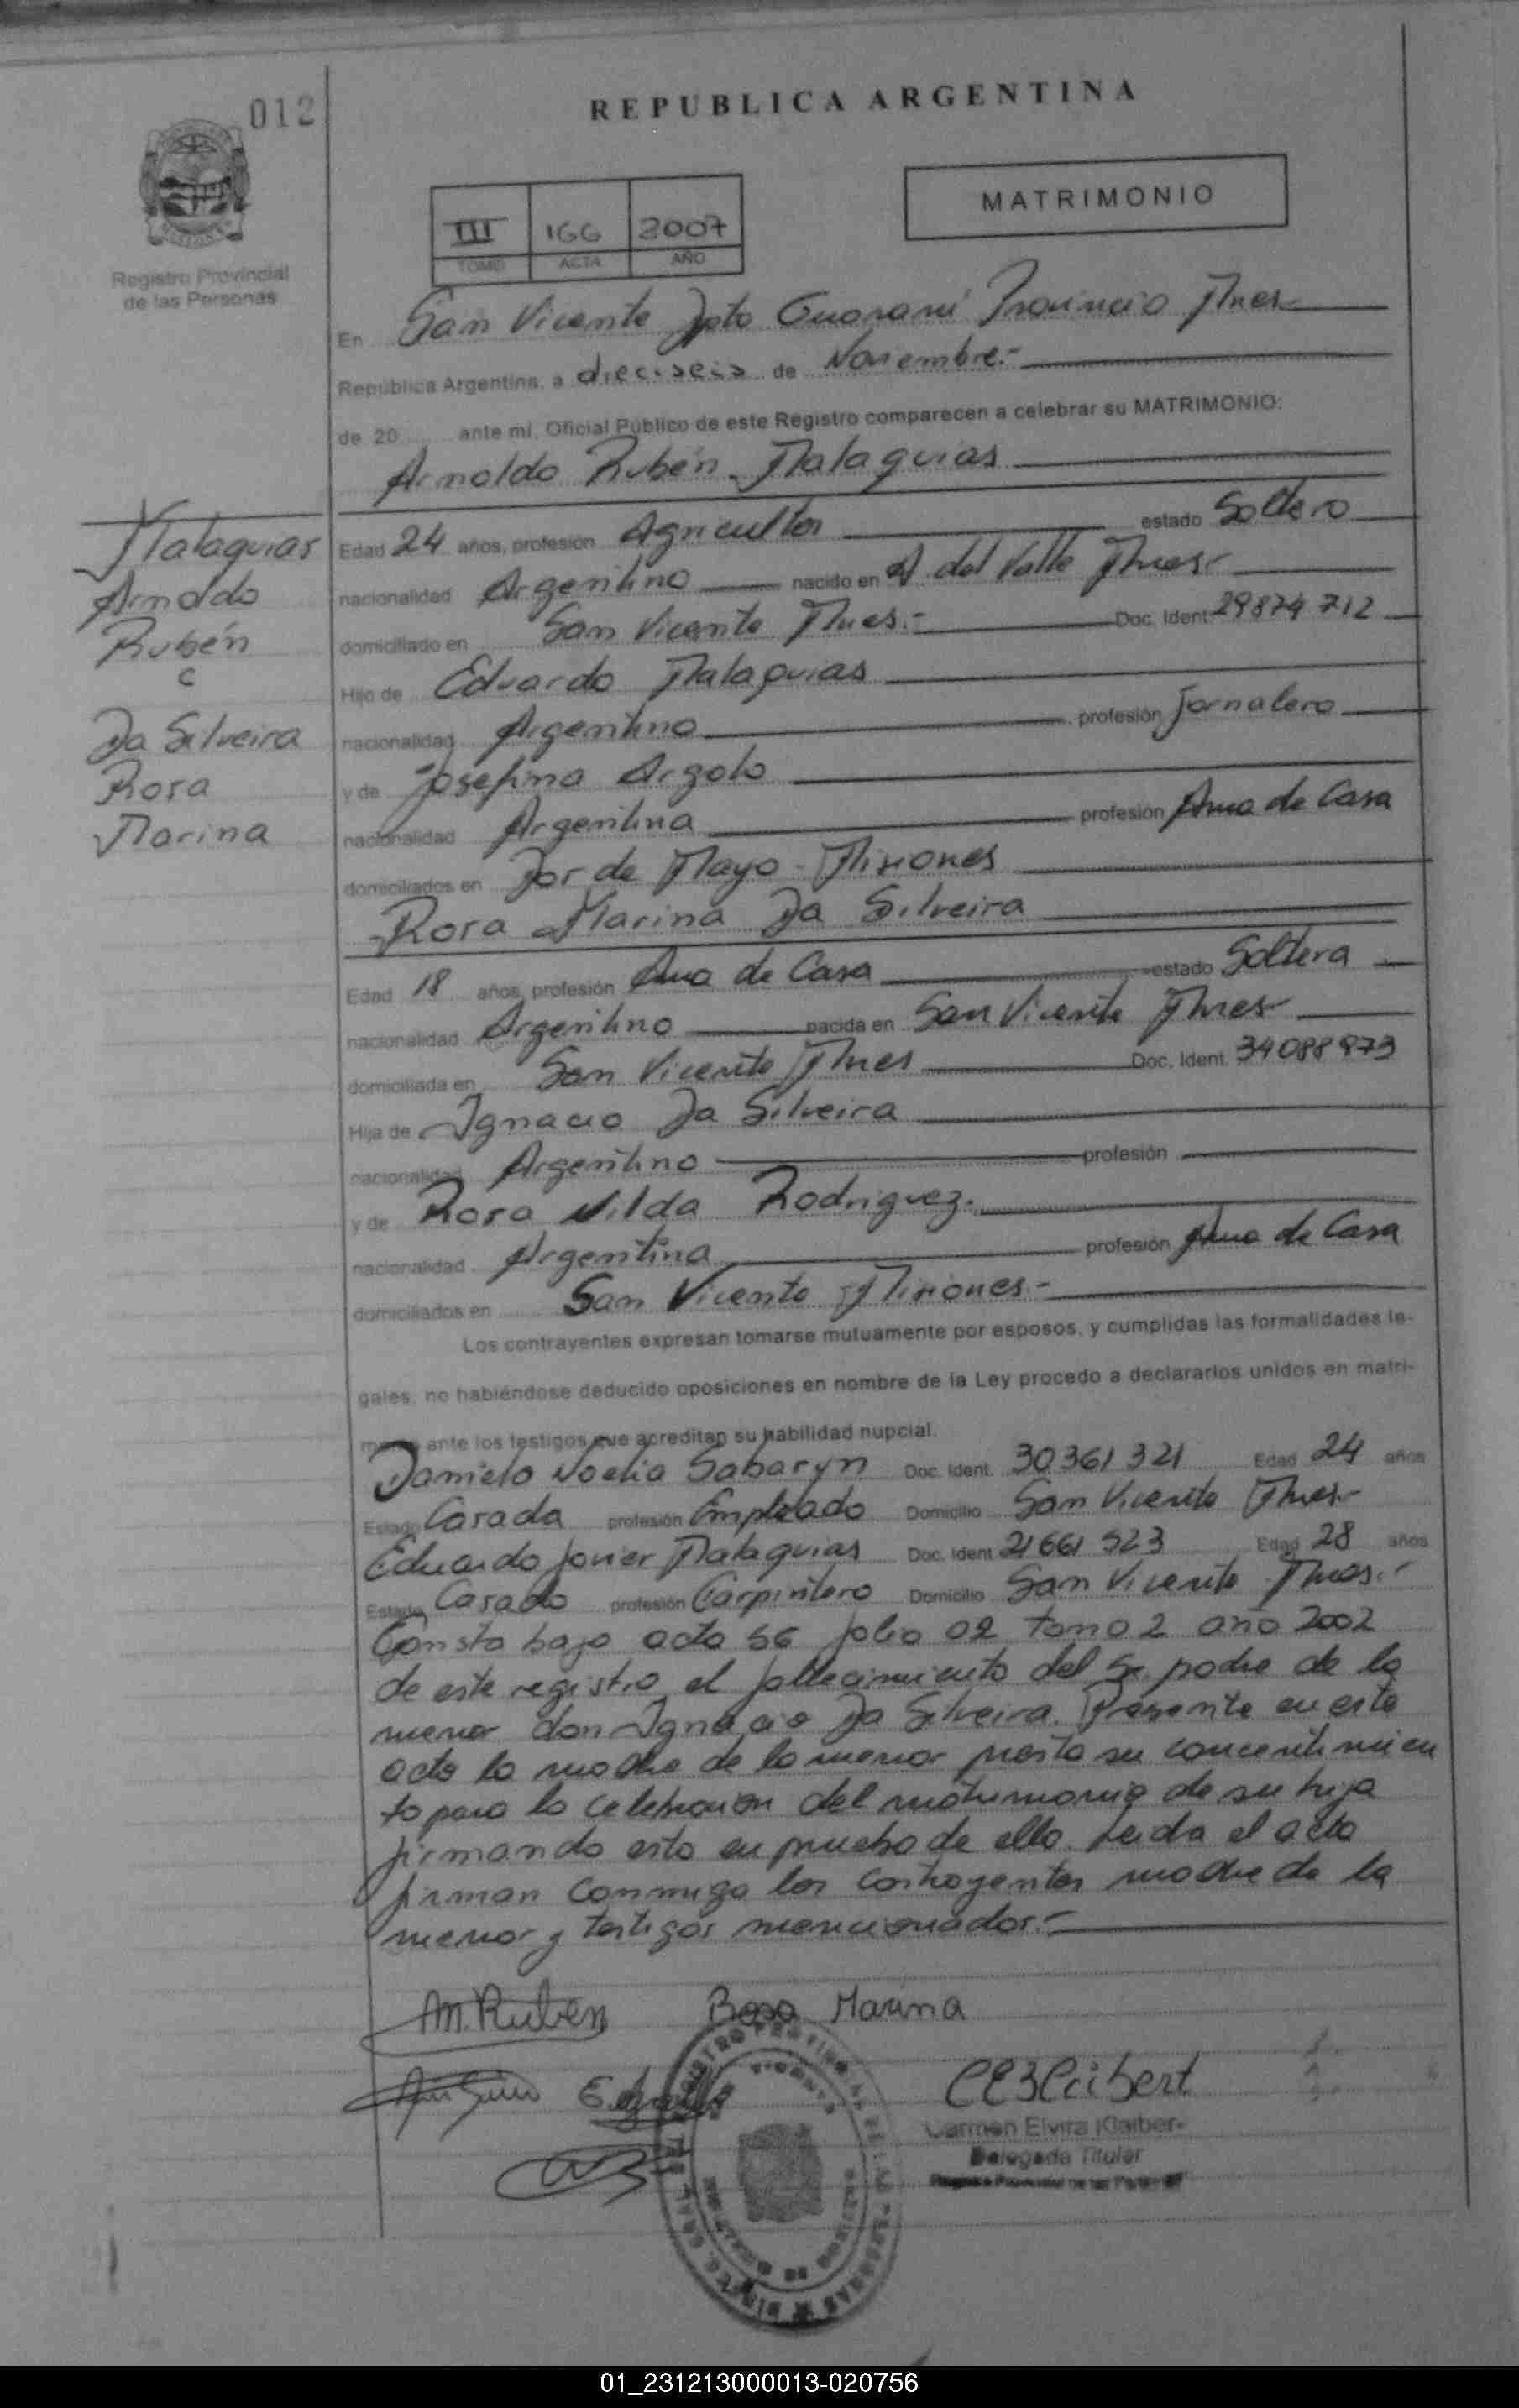 012
REPUBLICA ARGENTINA
MATRIMONIO
III 166 2007
TOMO ACTA AÑO
Registro Provincial
de las Personas
En San Vicente Dpto Guaraní Provincia Mnes
República Argentina, a dieciseis de Noviembre.-
de 20 ante mi, Oficial Público de este Registro comparecen a celebrar su MATRIMONIO:
Arnoldo Rubén Malaquias
Malaquias
Arnoldo
Rubén
c
Da Silveira
Rosa
Marina
Edad 24 años, profesión Agricultor estado Soltero
nacionalidad Argentino nacido en A del Valle Mnes-
domiciliado en San Vicente Mnes.- Doc. Ident. 29874712
Hijo de Eduardo Malaquias
nacionalidad Argentino profesión Jornalero
y de Josefina Argolo
nacionalidad Argentina profesión Ama de Casa
domiciliados en Dos de Mayo - Misiones
Rosa Marina Da Silveira
Edad 18 años, profesión Ama de Casa estado Soltera
nacionalidad Argentino nacida en San Vicente Mnes-
domiciliada en San Vicente Mnes Doc. Ident. 34088973
Hija de Ignacio Da Silveira
nacionalidad Argentino profesión
y de Rosa Nilda Rodriguez.
nacionalidad Argentina profesión Ama de Casa
domiciliados en San Vicente Misiones.-
Los contrayentes expresan tomarse mutuamente por esposos, y cumplidas las formalidades le-
gales, no habiéndose deducido oposiciones en nombre de la Ley procedo a declararlos unidos en matri-
ante los testigos que acreditan su habilidad nupcial.
Daniela Noelia Sabaryn Doc. Ident. 30361321 Edad 24 años
Estado Casada profesión Empleado Domicilio San Vicente Mnes-
Eduardo Javier Malaquias Doc. Ident. 21661523 Edad 28 años
Estado Casado profesión Carpintero Domicilio San Vicente Mnes.-
Consta bajo acta 56 folio 02 tomo 2 año 2002
de este registro el fallecimiento del Sr. padre de la
menor don Ignacio Da Silveira. Presente en este
acto la madre de la menor presta su concentimien
to para la celebracion del matrimonio de su hija
firmando esta en prueba de ello. Leida el acta
firman conmigo los contrayentes madre de la
menor y testigos mencionados.-
M. Ruben Rosa Marina
Carmen Elvira Klaiber
Delegada Titular
01_231213000013-020756